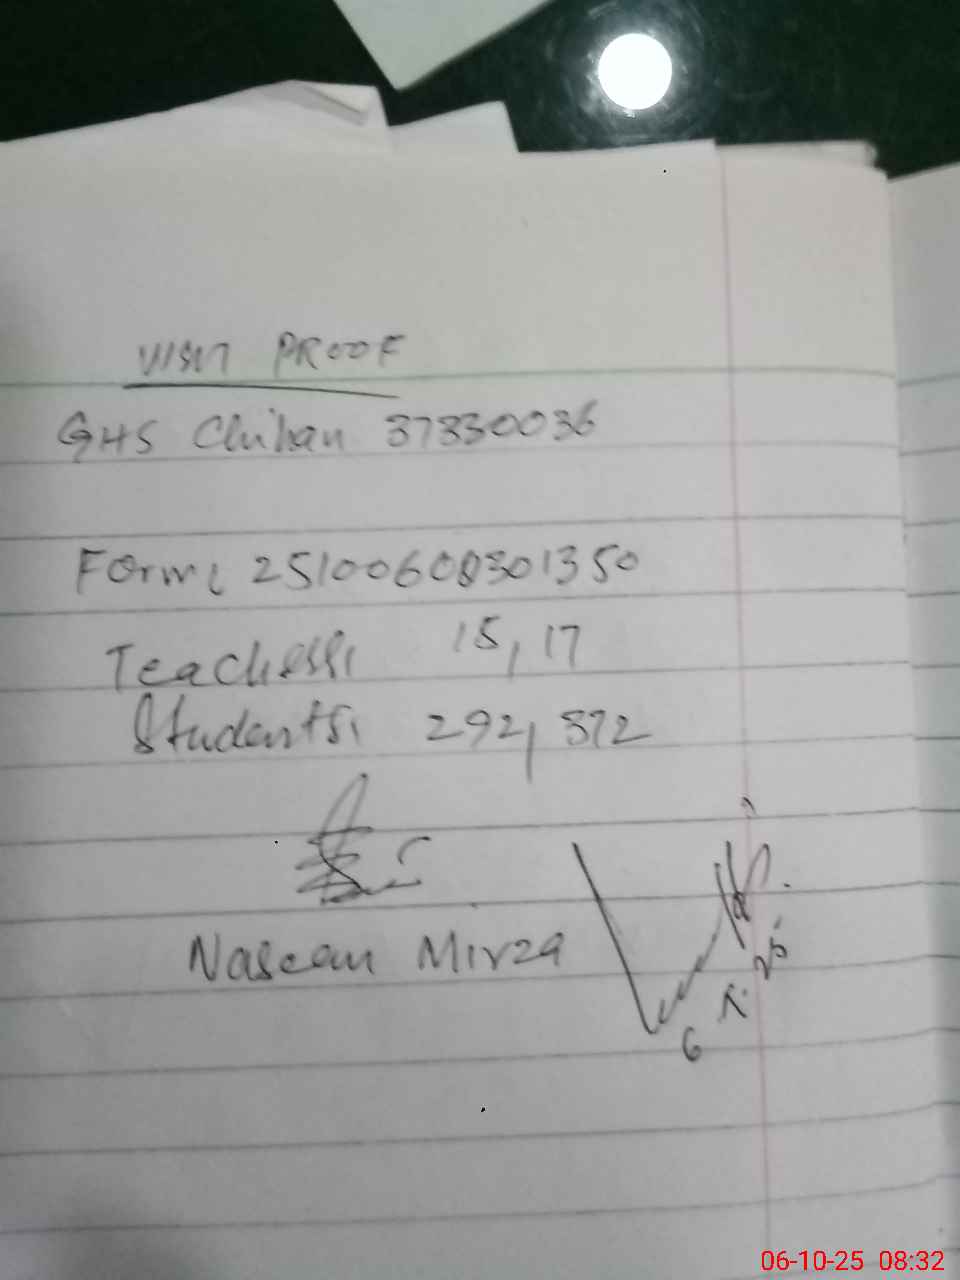 VISIT PROOF
GHS Chihan 37330036
Form: 25100608301350
Teachers: 15, 17
Students: 292, 372
Naseem Mirza
06-10-25 08:32